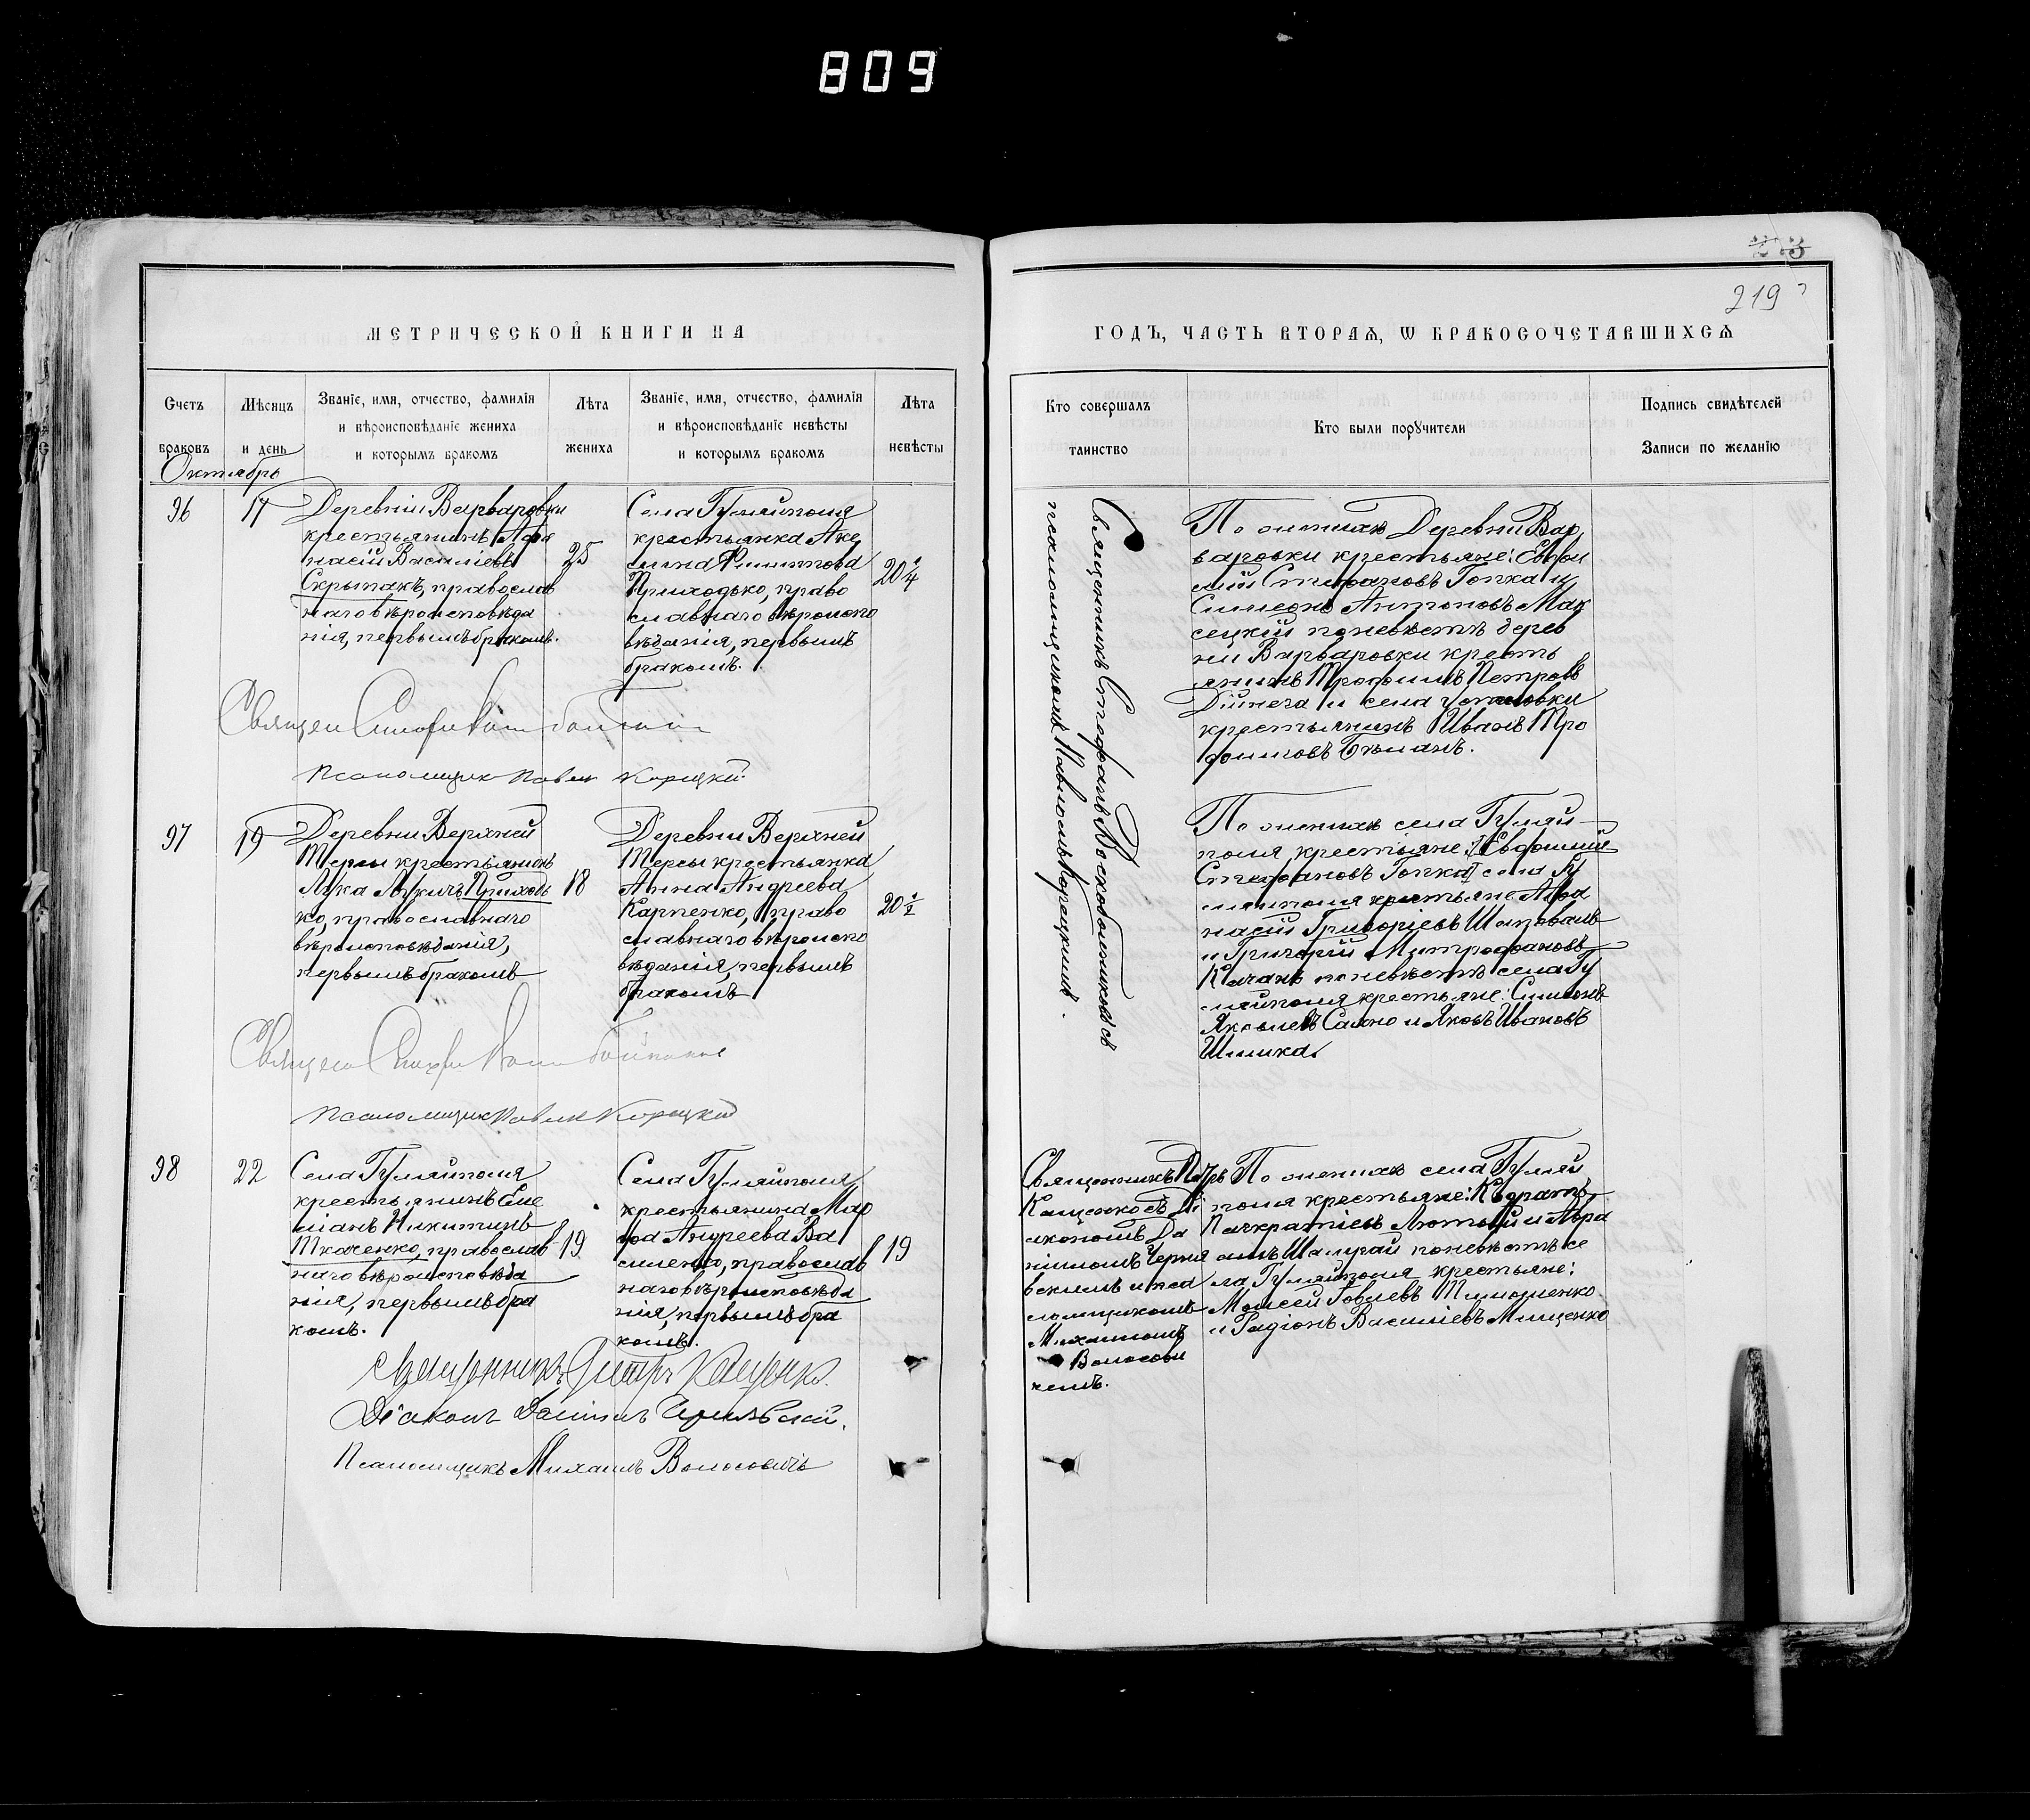 809
219
МЕТРИЧЕСКОЙ КНИГИ НА
ГОДЪ, ЧАСТЬ ВТОРАѦ, Ѡ БРАКОСОЧЕТАВШИХСѦ
Счетъ
браковъ
Мѣсяцъ
и день
Званіе, имя, отчество, фамилія
и вѣроисповѣданіе жениха
и которымъ бракомъ
Лѣта
жениха
Званіе, имя, отчество, фамилія
и вѣроисповѣданіе невѣсты
и которымъ бракомъ
Лѣта
невѣсты
Кто совершалъ
таинство
Кто были порꙋчители
Подпись свидѣтелей
Записи по желанію
Октябрь
96
17
Деревни Варваровки
крестьянинъ Афа
насій Василіевъ
Скрыпакъ, православ
наго вѣроисповѣда
нія, первымъ бракомъ.
25
Села Гуляйполя
крестьянка Аке
лина Филиппова
Приходько, право
славнаго вѣроиспо
вѣданія, первымъ
бракомъ.
20
Священникъ Стефанъ Воскобойниковъ съ
псаломщикомъ Павломъ Корецкимъ.
По женихѣ Деревни Вар
варовки крестьяне: Евфи
мій Стефановъ Гопка и
Симеонъ Антоновъ Мак
сецкій по невѣстѣ дерев
ни Варваровки кресть
янинъ Трофимъ Петровъ
и села Успеновки
крестьянинъ Иванъ Тро
фимовъ
Псаломщик Павел Корецкий
97
19
Деревни Верхней
Терсы крестьянинъ
Лука Лукичъ Приходь
ко, православнаго
вѣроисповѣданія,
первымъ бракомъ
18
Деревни Верхней
Терсы крестьянка
Анна Андреева
Карпенко, право
славнаго вѣроиспо
вѣданія, первымъ
бракомъ
20 ½
По женихѣ села Гуляй-
поля крестьяне: Евфимій
Стефановъ Гопка села Гу
ляйполя крестьяне Афа
насій Григоріевъ Шаповалъ
и Григорій Митрофановъ
Качанъ по невѣстѣ села Гу
ляйполя крестьяне: Симеонъ
Яковлевъ Сахно и Яковъ Ивановъ
Псаломщик Павел Корецкий
98
22
Села Гуляйполя
крестьянинъ Еме
ліанъ Никитинъ
Ткаченко, православ
наго вѣроисповѣда
нія, первымъ бра
комъ.
19
Села Гуляйполя
крестьянина Мар
фа Андреева Ва
силенко, православ
наго вѣроисповѣда
нія, первымъ бра
комъ.
19
Священникъ Петръ
Кащенко съ Ді
акономъ Да
ніиломъ Черня
вскимъ и пса
ломщикомъ
Михаиломъ
Волосови
чемъ.
По женихѣ села Гуляй
поля крестьяне: Кодратъ
Панкратіевъ Лютый и Авра
амъ Шамрай по невѣстѣ се
ла Гуляйполя крестьяне:
Моисей Іовлевъ Тимошенко
и Радіонъ Василіевъ Мищенко
Священникъ Петръ Кащенко.
Діаконъ Даніилъ Чернявскій.
Псаломщикъ Михаилъ Волосовичъ